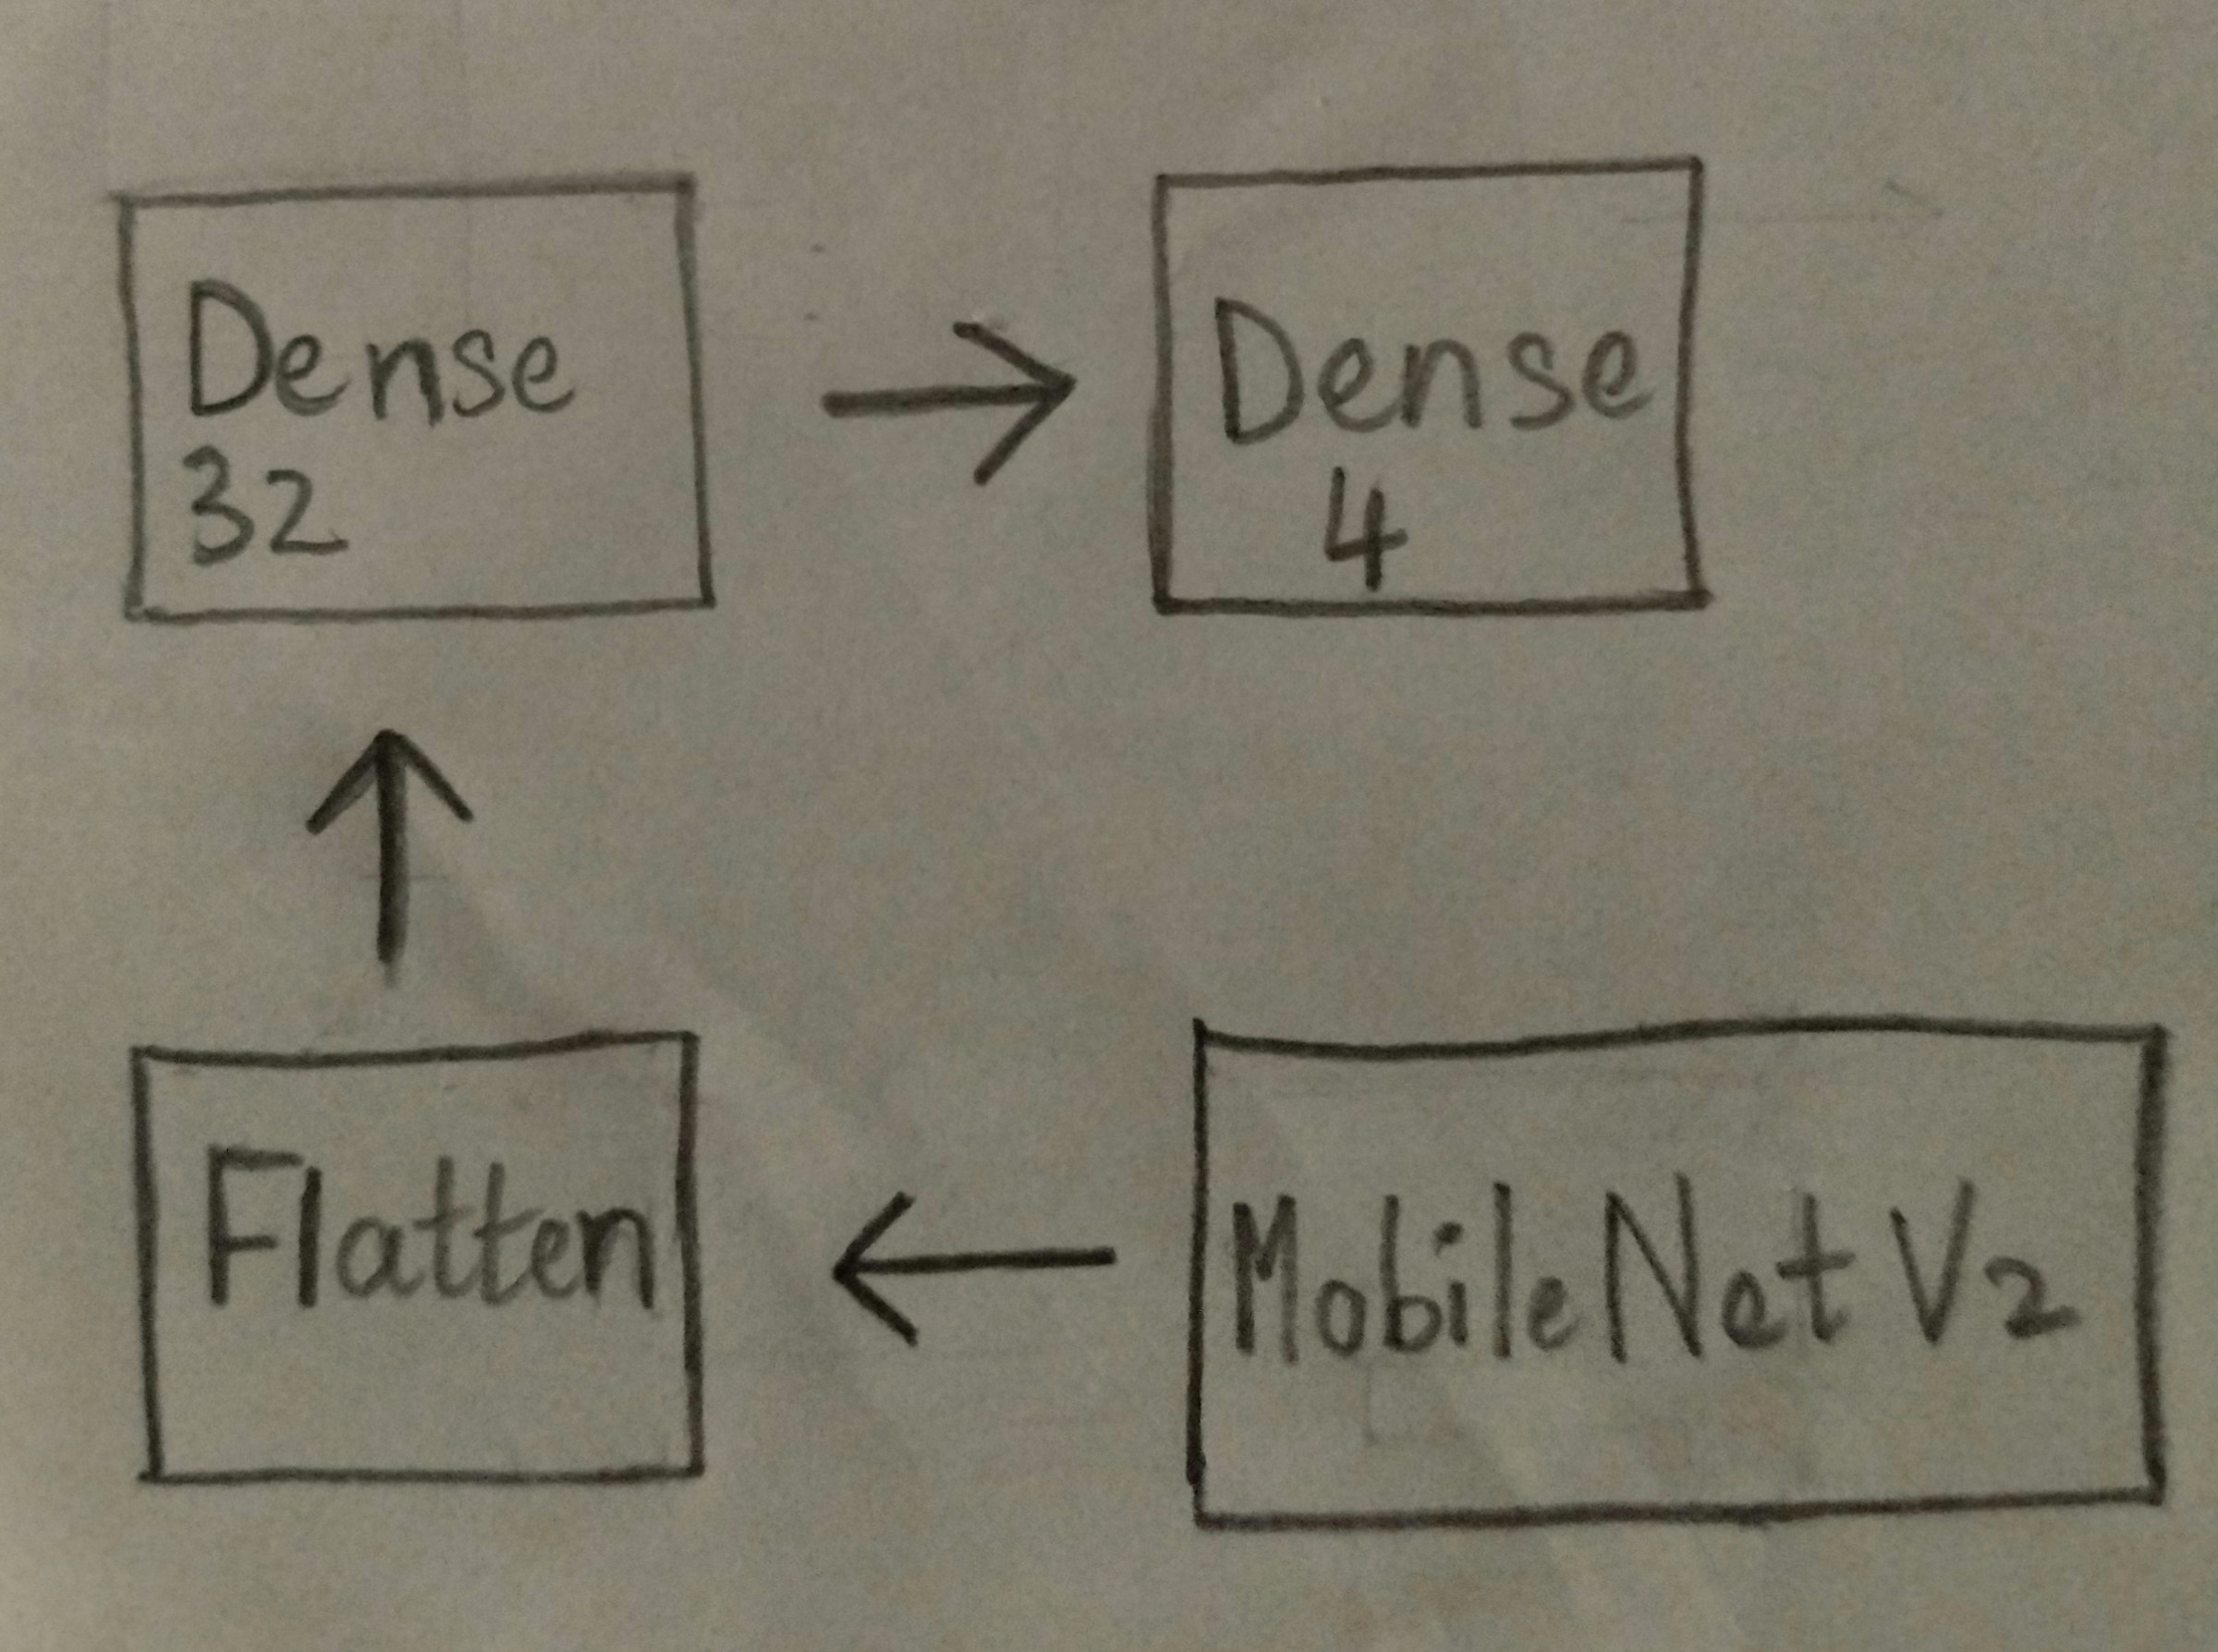 Dense
32
Dense
4
Flatten
MobileNet V2